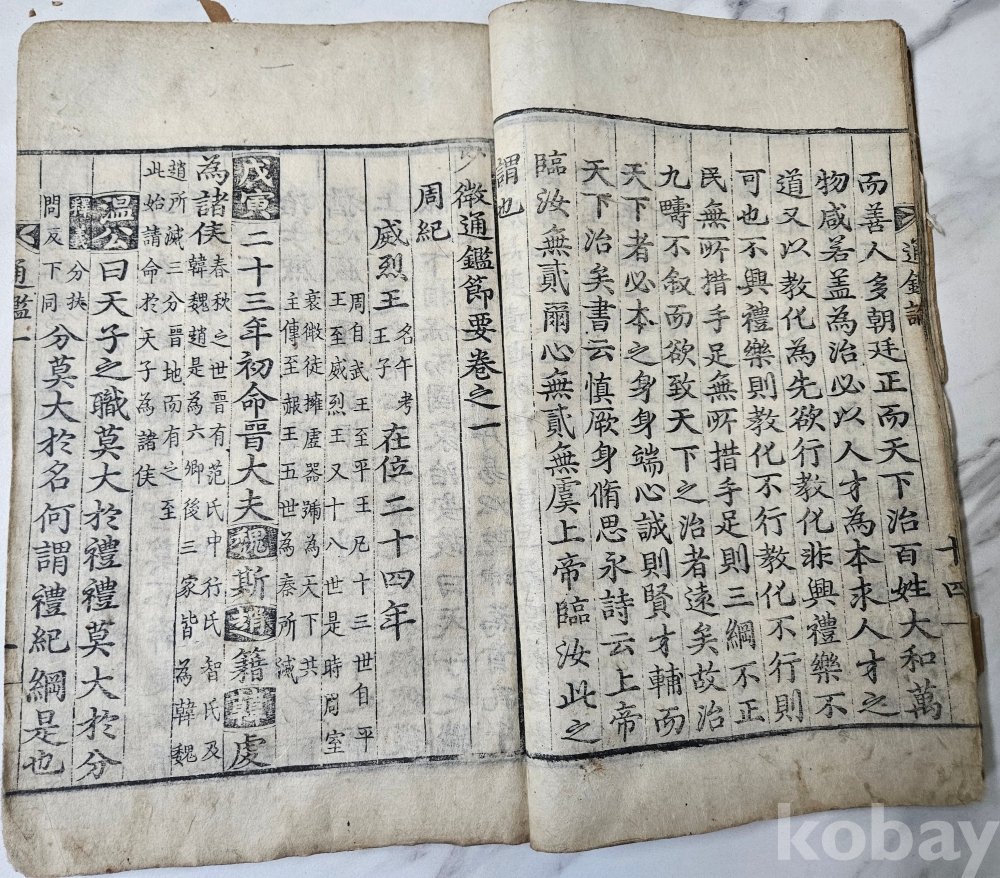 通鑑論 十四
而善人多朝廷正而天下治百姓大和萬
物咸若盖為治必以人才為本求人才之
道又以教化為先欲行教化非興禮樂不
可也不興禮樂則教化不行教化不行則
民無所措手足無所措手足則三綱不正
九疇不叙而欲致天下之治者遠矣故治
天下者必本之身身端心誠則賢才輔而
天下治矣書云慎厥身脩思永詩云上帝
臨汝無貳爾心無貳無虞上帝臨汝此之
謂也
微通鑑節要卷之一
周紀
威烈王名午考王子在位二十四年
周自武王至平王凡十三世自平
王至威烈王又十八世是時周室
衰微徒擁虛器號為天下共
主傳至赧王五世為秦所滅
戊寅二十三年初命晉大夫魏斯趙籍韓虔
為諸侯春秋之世晉有范氏中行氏智氏及
韓魏趙是為六卿後三家皆為韓魏
趙所滅三分晉地而有之至
此始請命於天子為諸侯
溫公曰天子之職莫大於禮禮莫大於分
釋義分扶
問反下同
分莫大於名何謂禮紀綱是也
通鑑一
kobay